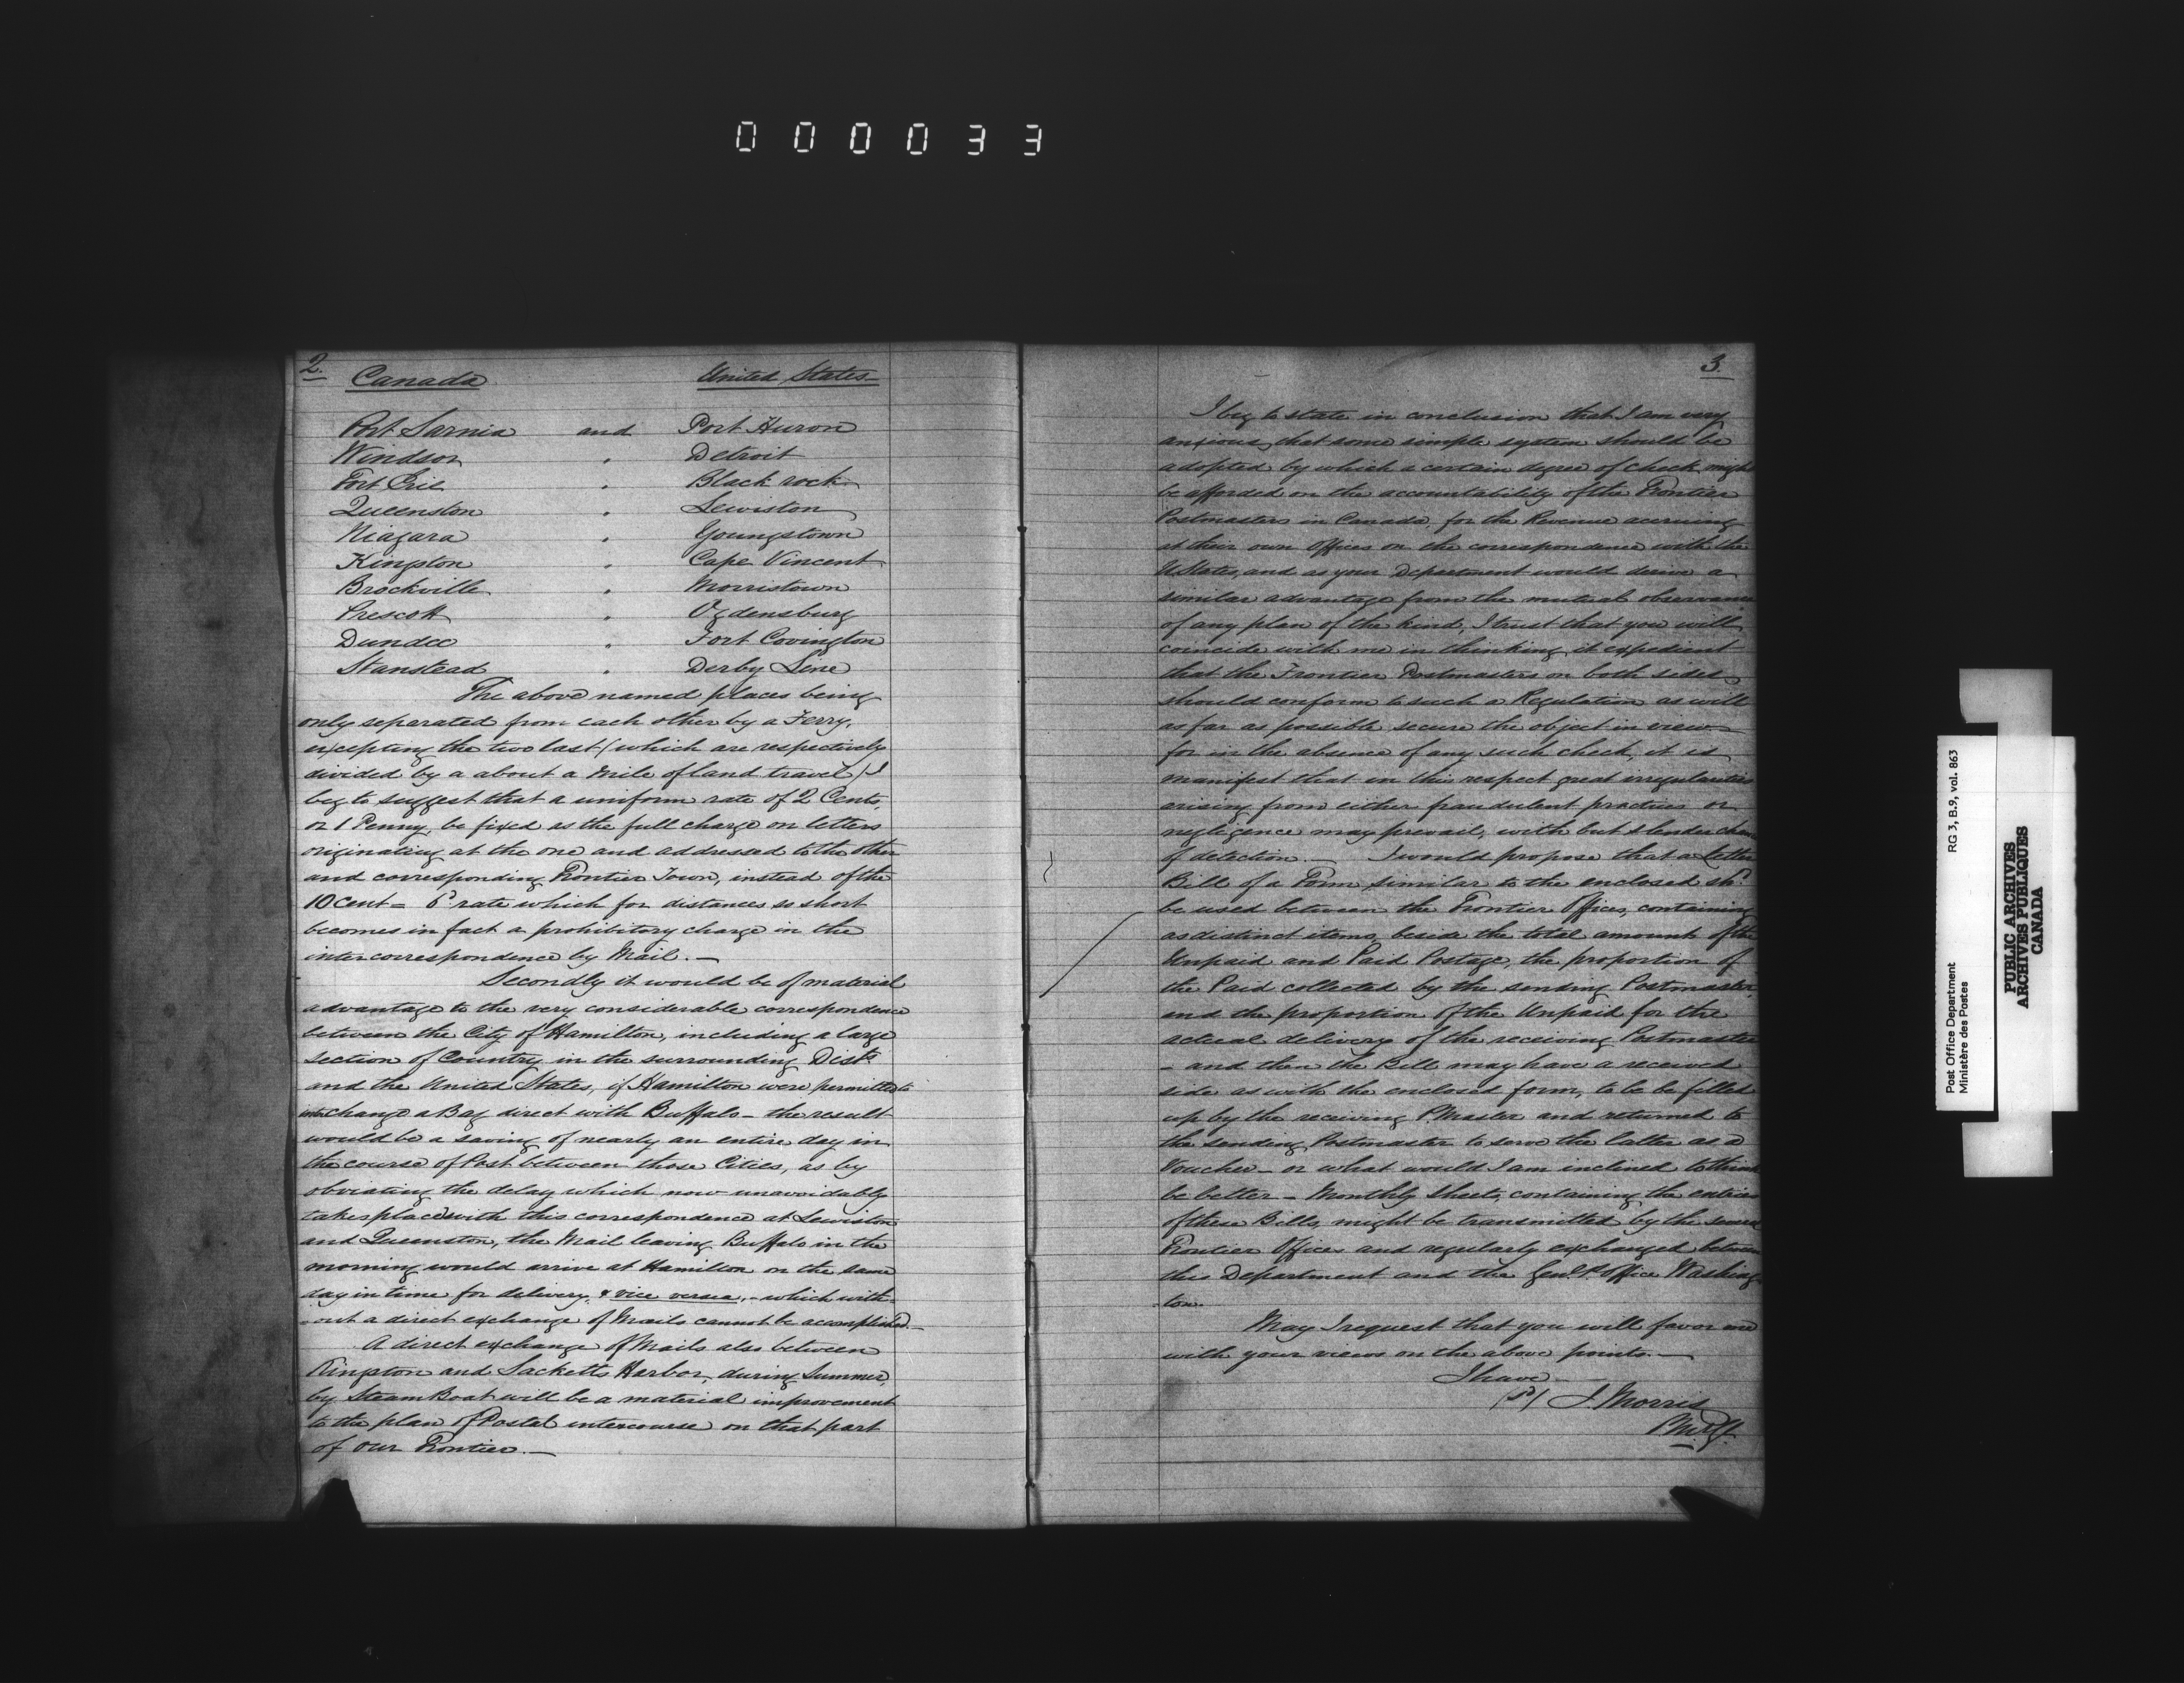 000033
2.
Canada United States
Port Sarnia and Port Huron
Windsor " Detroit
Fort Erie " Black rock
Queenston " Lewiston
Niagara " Youngstown
Kingston " Cape Vincent
Brockville " Morristown
Prescott " Ogdensburg
Dundee " Fort Covington
Stanstead " Derby Line
The above named places being
only separated from each other by a Ferry,
excepting the two last (which are respectively
divided by a about a mile of land travel) I
beg to suggest that a uniform rate of 2 Cents,
or 1 Penny, be fixed as the full charge on letters
originating at the one and addressed to the other
and corresponding Frontier Town, instead of the
10 cent = 6d rate which for distances so short
becomes in fact a prohibitory charge in the
intercorrespondence by Mail. —
Secondly it would be of material
advantage to the very considerable correspondence
between the City of Hamilton, including a large
section of Country in the surrounding Dists
and the United States, if Hamilton were permitted to
interchange a Bag direct with Buffalo – the result
would be a saving of nearly an entire day in
the course of Post between those Cities, as by
obviating the delay which now unavoidably
takes place with this correspondence at Lewiston
and Queenston, the Mail leaving Buffalo in the
morning would arrive at Hamilton on the same
day in time for delivery & vice versa, – which with-
-out a direct exchange of Mails cannot be accomplished. –
A direct exchange of Mails also between
Kingston and Sacketts Harbor, during Summer,
by Steam Boat will be a material improvement
to the plan of Postal intercourse on that part
of our Frontier. —
3.
I beg to state in conclusion that I am very
anxious, that some simple system should be
adopted by which a certain degree of check might
be afforded on the accountability of the Frontier
Postmasters in Canada, for the Revenue accruing
at their own Offices on the correspondence with the
U States, and as your Department would derive a
similar advantage from the mutual observance
of any plan of the kind, I trust that you will
coincide with me in thinking it expedient
that the Frontier Postmasters on both sides
should conform to such a Regulation as will
as far as possible secure the object in view –
for in the absence of any such check, it is
manifest that in this respect great irregularities
arising from either fraudulent practices or
negligence may prevail, with but slender chance
of detection. — I would propose that a Letter
Bill of a Form similar to the enclosed shd.
be used between the Frontier Offices, containing
as distinct items, beside the total amount of the
Unpaid and Paid Postage, the proportion of
the Paid collected by the sending Postmaster
and the proportion of the Unpaid for the
actual delivery of the receiving Postmaster
– and then the Bill may have a received
side as with the enclosed form, to be be filled
up by the receiving P.Master and returned to
the sending Postmaster to serve the latter as a
Voucher – or what would I am inclined to think
be better – Monthly Sheets, containing the entries
of these Bills, might be transmitted by the several
Frontier Offices and regularly exchanged between
this Department and the Genl P. Office Washing-
-ton.
May I request that you will favor me
with your views on the above points. —
I have —
(sd) J. Morris
P.M.Gl.
Post Office Department RG 3, B.9, vol. 863
Ministère des Postes
PUBLIC ARCHIVES
ARCHIVES PUBLIQUES
CANADA